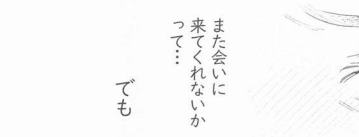 また会いに
来てくれないか
って…
でも